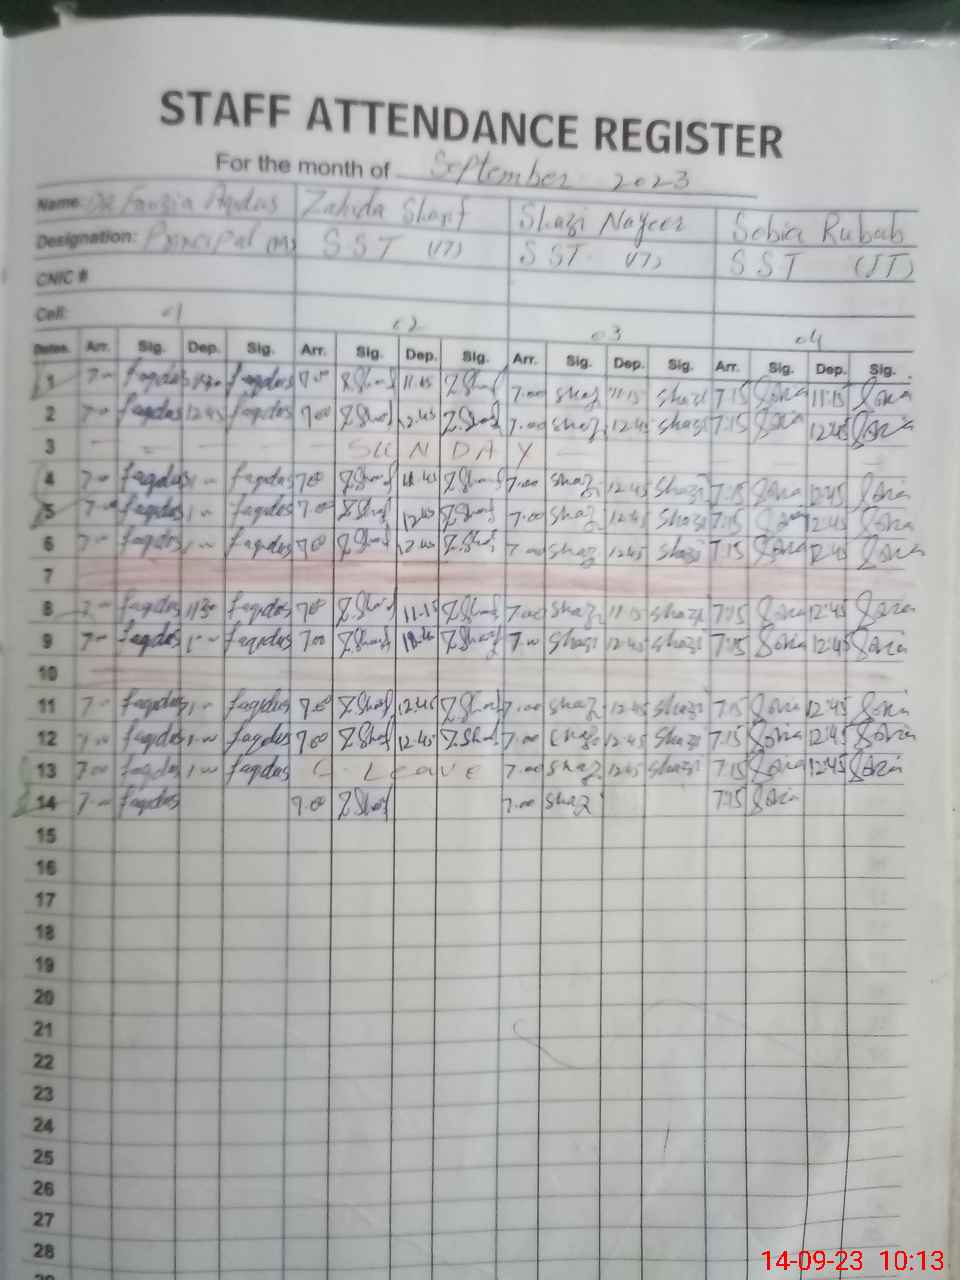 STAFF ATTENDANCE REGISTER
For the month of September 2023
Name: Dr Fauzia Aqdas Zahida Sharif Shazi Nayeer Sobia Rubab
Designation: Principal SST (17) SST (17) SST (IT)
CNIC #
Cell: 01 02 03 04
Dates. Arr. Sig. Dep. Sig. Arr. Sig. Dep. Sig. Arr. Sig. Dep. Sig. Arr. Sig. Dep. Sig.
1 7-- faqdas 1130 faqdas 7 00 Z.Sharif 11.15 Z.Sharif 7.00 shaz 11:15 shazi 7:15 Sobia 11:15 Sobia
2 7-- faqdas 12.45 faqdas 7 00 Z.Sharif 12.45 Z.Sharif 7.00 shaz 12.45 shazi 7:15 Sobia 12:45 Sobia
3 SUNDAY
4 7-- faqdas 1-- faqdas 7 00 Z.Sharif Z.Sharif 7.00 shaz 12.45 shazi 7:15 Sobia 12:45 Sobia
5 7-- faqdas 1-- faqdas 7.00 Z.Sharif 12.45 Z.Sharif 7.00 shaz 12.45 shazi 7:15 Sobia 12:45 Sobia
6 7-- faqdas 1-- faqdas 7 00 Z.Sharif 12.45 Z.Sharif 7.00 shaz 12.45 shazi 7:15 Sobia 12:45 Sobia
7
8 7-- faqdas 1130 faqdas 7 00 Z.Sharif 11.15 Z.Sharif 7.00 shaz 11.15 shazi 7:15 Sobia 12:45 Sobia
9 7-- faqdas 1-- faqdas 7 00 Z.Sharif Z.Sharif 7.00 shazi 12.45 shazi 7:15 Sobia 12:45 Sobia
10
11 7-- faqdas 1-- faqdas 7 00 Z.Sharif 12.45 Z.Sharif 7.00 shaz 12.45 shazi 7:15 Sobia 12:45 Sobia
12 7-- faqdas 1-- faqdas 7 00 Z.Sharif 12.45 Z.Sharif 7.00 shaz 12.45 shazi 7:15 Sobia 12:45 Sobia
13 7 00 faqdas 1-00 faqdas C - Leave 7.00 shaz 12.45 shazi 7:15 Sobia 12:45 Sobia
14 7-- faqdas 7.00 Z.Sharif 7.00 shaz 7:15 Sobia
15
16
17
18
19
20
21
22
23
24
25
26
27
28
14-09-23 10:13